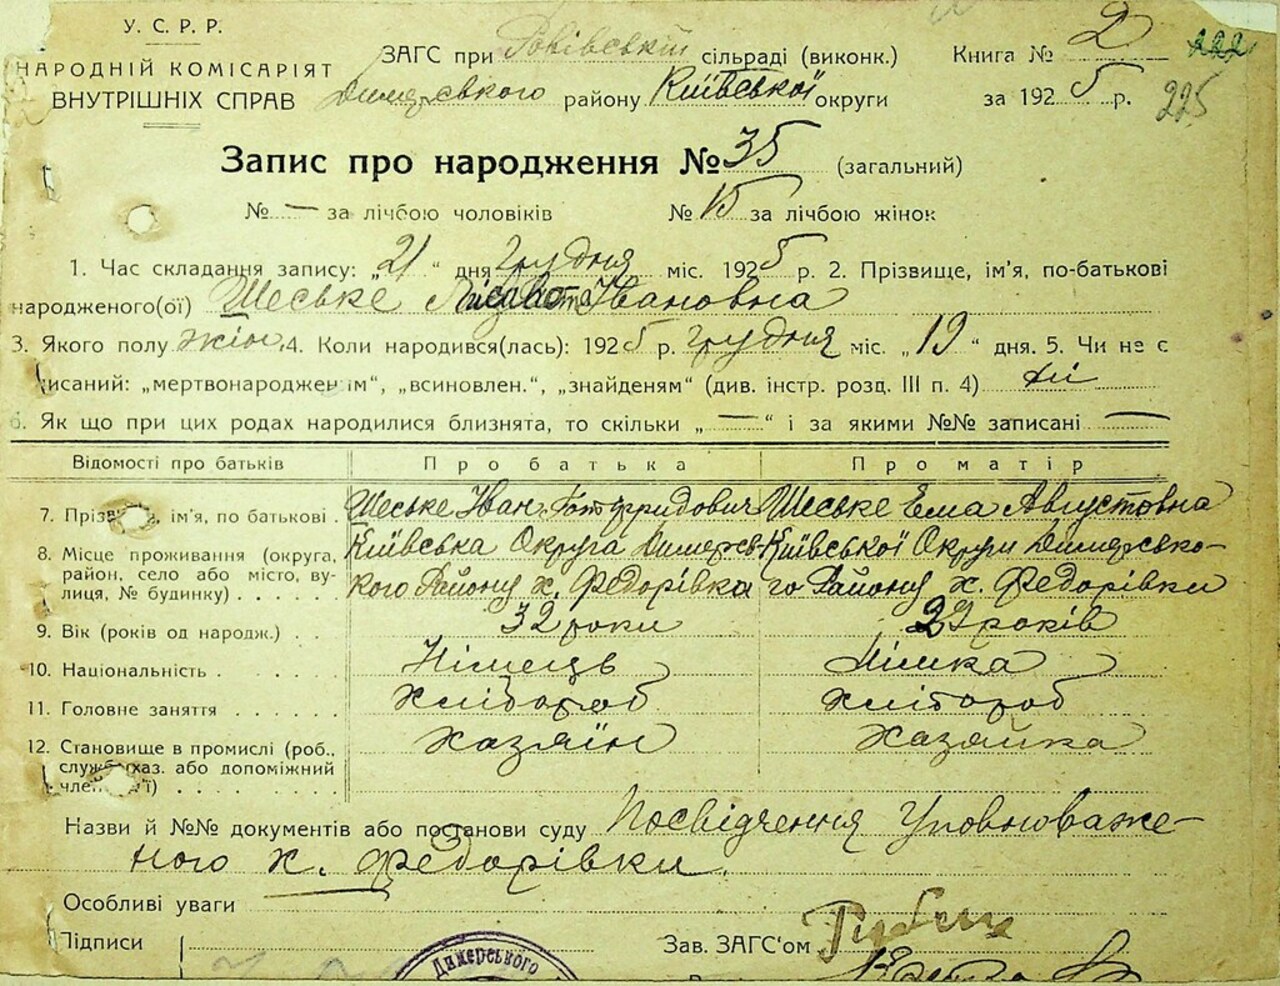 У. С. Р. Р.
НАРОДНІЙ КОМІСАРІЯТ
ВНУТРІШНІХ СПРАВ
ЗАГС при сільраді (виконк.) Книга № 2 222
Димерського району Київської округи за 1925 р. 225
Запис про народження № 35 (загальний)
№ — за лічбою чоловіків № 15 за лічбою жінок
1. Час складання запису: „21“ дня грудня міс. 1925 р. 2. Прізвище, ім'я, по-батькові
народженого(ої) Шеське Івановна
3. Якого полу жін. 4. Коли народився(лась): 1925 р. грудня міс. „19“ дня. 5. Чи не є
писаний: „мертвонародженим“, „всиновлен.“, „знайденям“ (див. інстр. розд. III п. 4) ні
6. Як що при цих родах народилися близнята, то скільки „—“ і за якими №№ записані —
Відомості про батьків Про батька Про матір
7. Прізв , ім'я, по батькові . Шеське Іван Готфридович Шеське Ема Августовна
8. Місце проживання (округа, район, село або місто, вулиця, № будинку) . . . . .
Київська Округа Димерсь- Київської Округи Димерсько-
кого Району х. Федорівка го Району х. Федорівки
9. Вік (років од народж.) . . 32 роки 29 років
10. Національність . . . . . Німець Німка
11. Головне заняття . . . . . . Хлібороб Хлібороб
12. Становище в промислі (роб., Хазяїн Хазяйка
служб. хаз. або допоміжний
член ії) . . . . . . .
Назви й №№ документів або постанови суду Посвідчення Уповноваже-
ного х. Федорівки.
Особливі уваги
Підписи Зав. ЗАГС'ом
Димерського